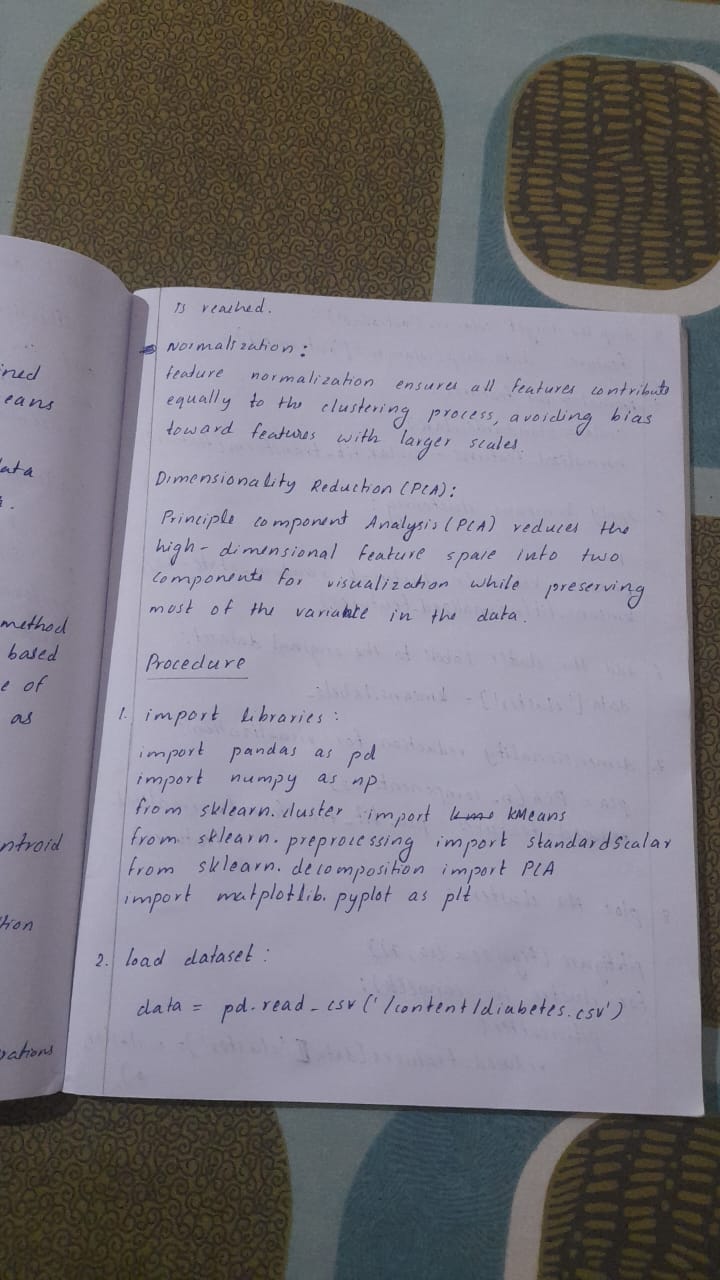 ined
eans
data
method
based
e of
as
ntroid
tion
rations
is reached.
Normalization:
feature normalization ensures all features contribute
equally to the clustering process, avoiding bias
toward features with larger scales.
Dimensionality Reduction (PCA):
Principle component Analysis (PCA) reduces the
high-dimensional feature space into two
components for visualization while preserving
most of the variance in the data.
Procedure
1. import libraries:
import pandas as pd
import numpy as np
from sklearn.cluster import kMeans
from sklearn.preprocessing import standardScalar
from sklearn.decomposition import PCA
import matplotlib.pyplot as plt
2. load dataset:
data = pd.read_csv('/content/diabetes.csv')